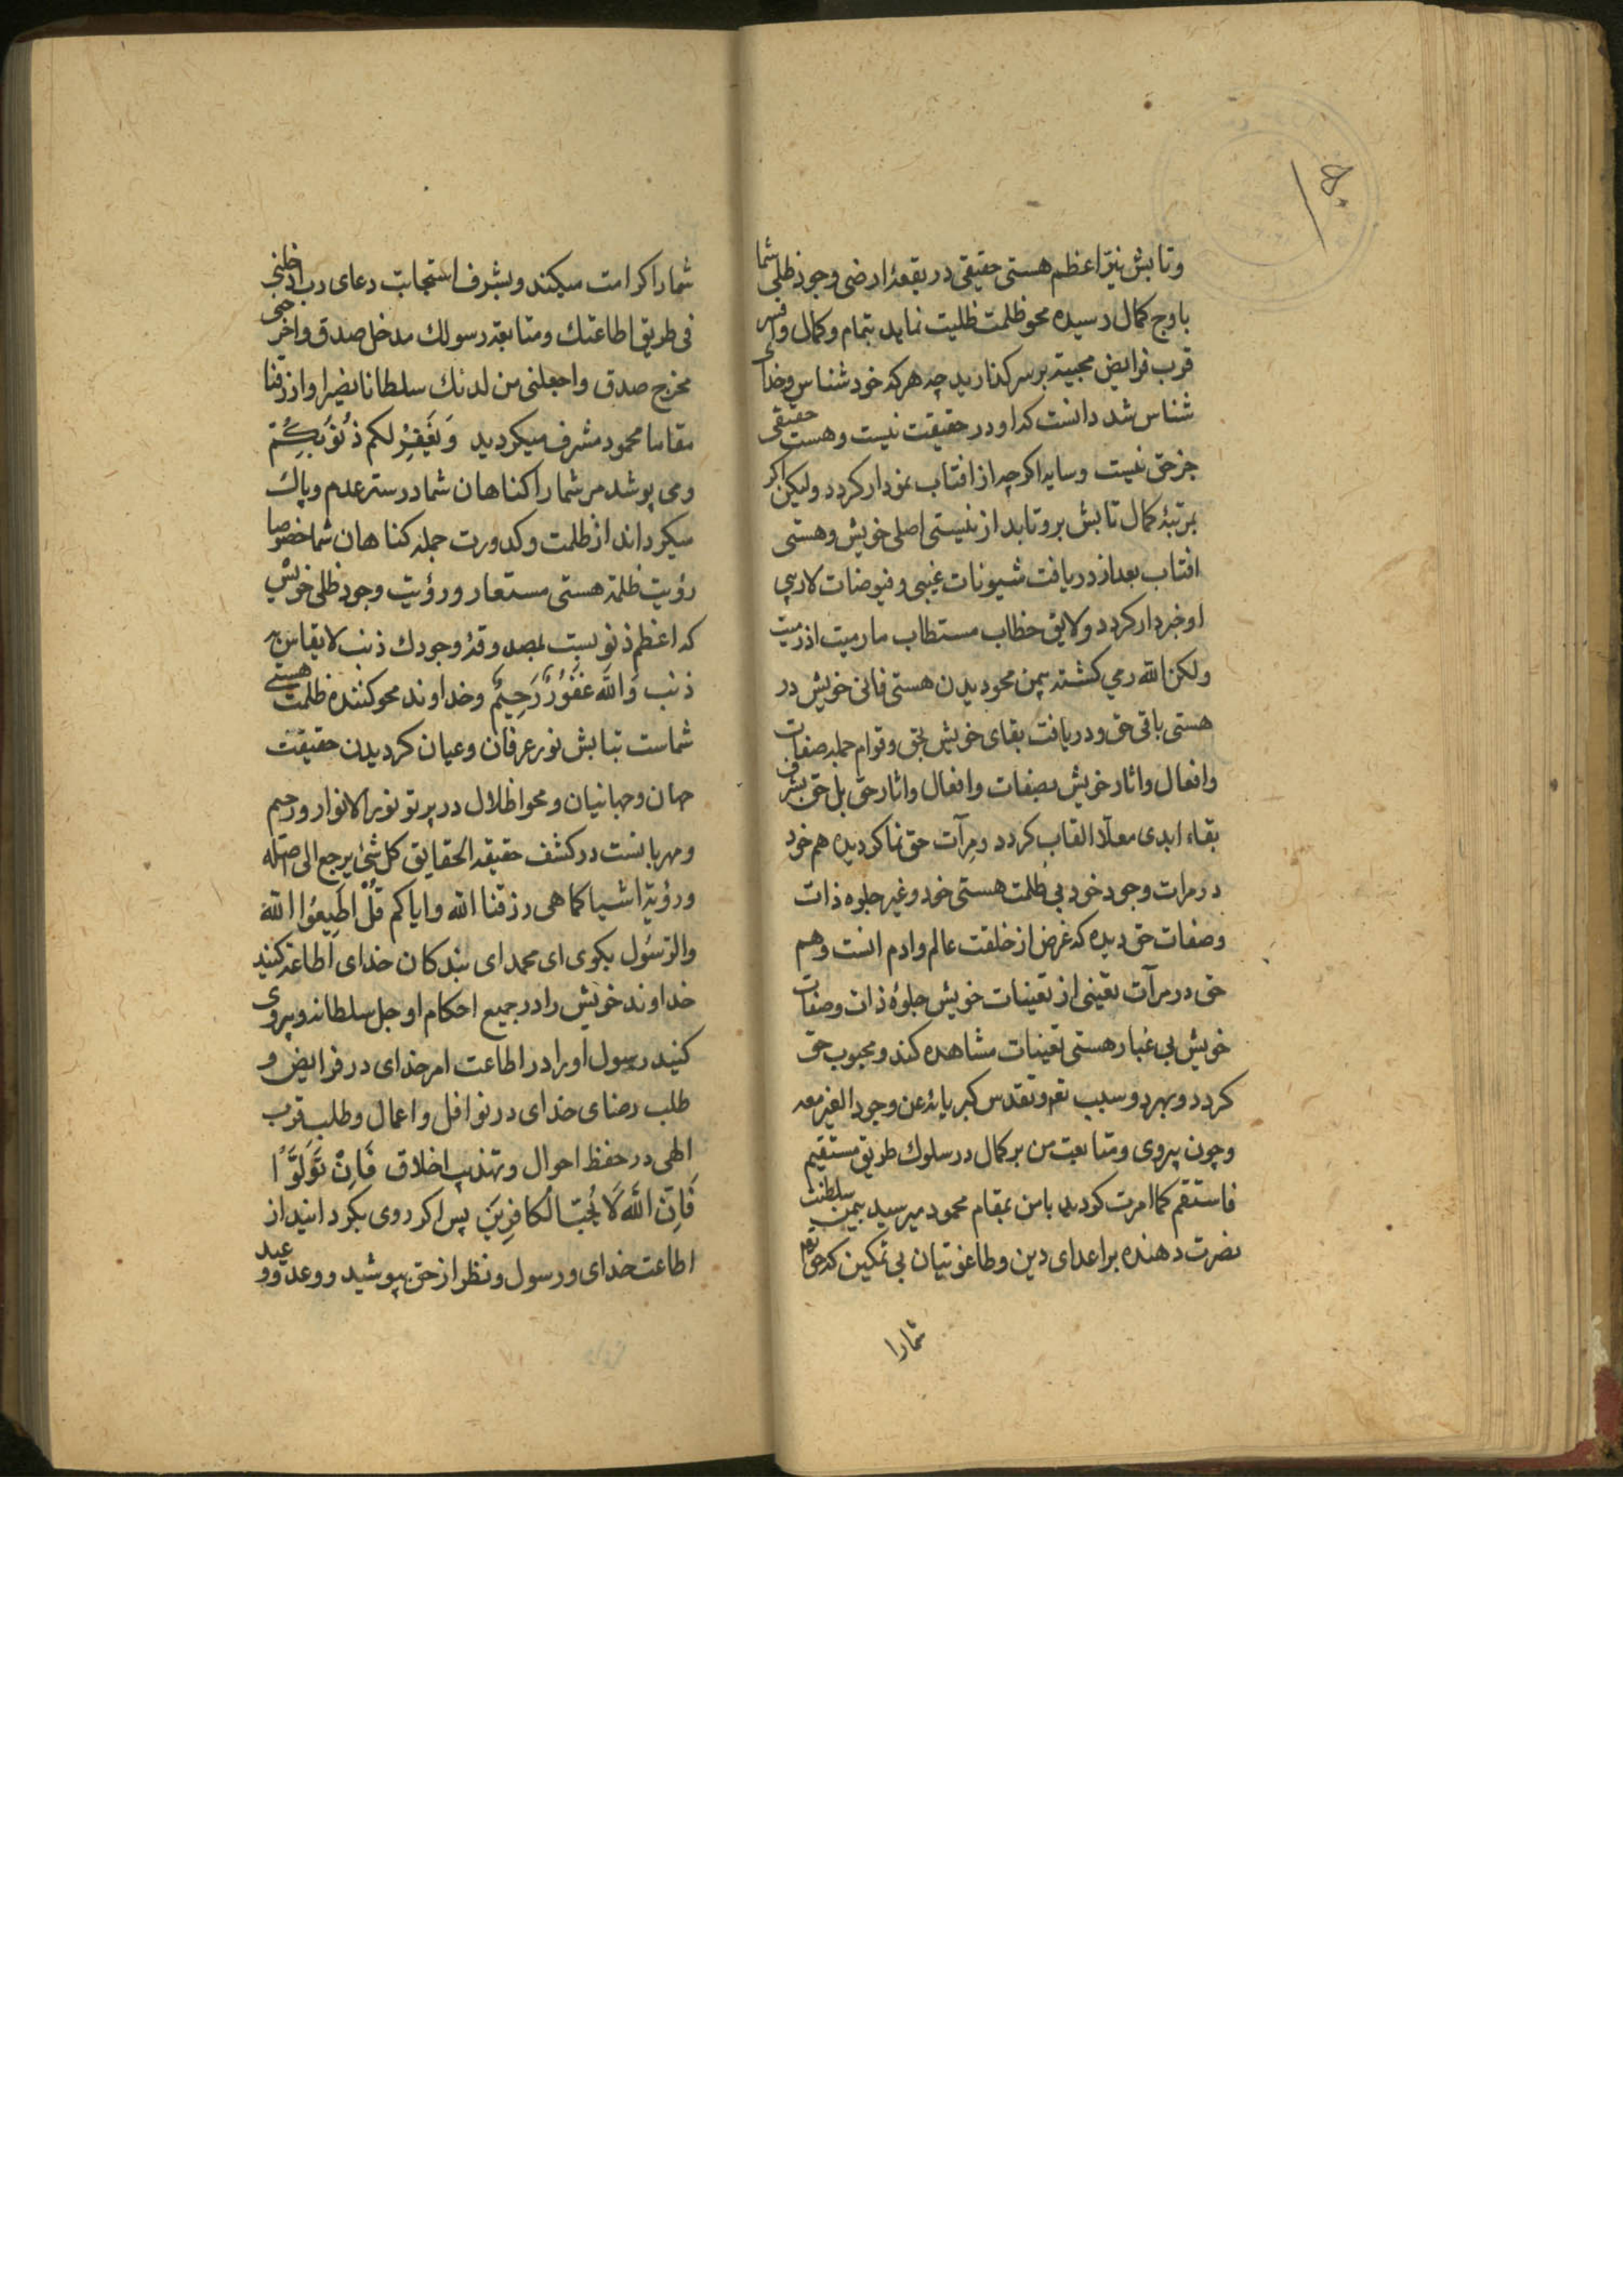 وتابش نیّر اعظم هستی حقیقی در بقعهٔ ارضی وجود ظلی شما
باوج کمال رسیده محو ظلمت ظلیت نماید بتمام وکمال وافسر
قرب فرایض محبیته بر سر کذارید چه هر که خود شناس وخدای
شناس شد دانست که او در حقیقت نیست وهست حقیقی
جز حق نیست وسایه اکرچه از افتاب نمودار کردد ولیکن اکر
بمرتبهٔ کمال تابش برو تابد از نیستی اصلی خویش وهستی
افتاب بعد از دریافت شیونات غیبی وفیوضات لاریبی
او خبردار کردد ولایق خطاب مستطاب مارمیت اذ رمیت
ولکن الله رمی کشته بیمن محو دیدن هستی فانی خویش در
هستی باقی حق ودریافت بقای خویش بحق وقوام جمله صفات
وافعال واثار خویش بصفات وافعال واثار حق بل حق بشرف
بقاء ابدی معلّا القاب کردد ومرآت حق نما کردیده هم خود
در مرات وجود خود بی ظلمت هستی خود وغیر جلوه ذات
وصفات حق دیده که غرض از خلقت عالم وادم انست وهم
حق در مرآت تعینی از تعینات خویش جلوهٔ ذات وصفات
خویش بی غبار هستی تعینات مشاهده کند ومحبوب حق
کردد وبهرد وسبب تعر وتقدس کبریائه عن وجود الغیر معه
وچون پیروی ومتابعت من بر کمال در سلوك طریق مستقیم
فاستقم کما امرت کردید بامن بمقام محمود میرسید بیمن سلطنت
نصرت دهنده بر اعدای دین وطاغوتیان بی تمکین که حق تعا
شمارا
شمارا کرامت میکند وبشرف استجابت دعای رب ادخلنی
فی طریق اطاعتك ومتابعة رسولك مدخل صدق واخرجنی
مخرج صدق واجعلنی من لدنك سلطانا نصیرا وارزقنا
مقاما محمود مشرف میکردید وَیَغْفِرْ لکم ذُنُوبَكُمْ
ومی پوشد مر شما را کناهان شما در ستر عدم وپاك
میکرداند از ظلمت وکدورت جمله کناهان شما خصوصا
رؤیت ظلمة هستی مستعار ورؤیت وجود ظلی خویش
که اعظم ذنوبست بمصدوقهٔ وجودك ذنب لایقاس به
ذنب وَالله غَفُورٌ رَحِیمٌ وخداوند محو کننده ظلمت هستی
شماست بتابش نور عرفان وعیان کردیدن حقیقت
جهان وجهانیان ومحو اظلال در پرتو نور الانوار ورحیم
ومهربانست در کشف حقیقة الحقایق کل شئ یرجع الی اصله
ورؤیة اشیا کما هی رزقنا الله وایاکم قُلْ اَطِیعُوا اللهَ
والرّسُول بکوی ای محمد ای بندکان خدای اطاعة کنید
خداوند خویش را در جمیع احکام او جل سلطانه وپیروی
کنید رسول او را در اطاعت امر خدای در فرایض و
طلب رضای خدای در نوافل واعمال وطلب قرب
الهی در حفظ احوال وتهذیب اخلاق فَاِنْ تَوَلَّوْا
فَاِنَّ اللهَ لَا یُحِبُّ الْکَافِرِینَ پس اکر روی بکردانید از
اطاعت خدای ورسول ونظر از حق بپوشید ووعد ووعید